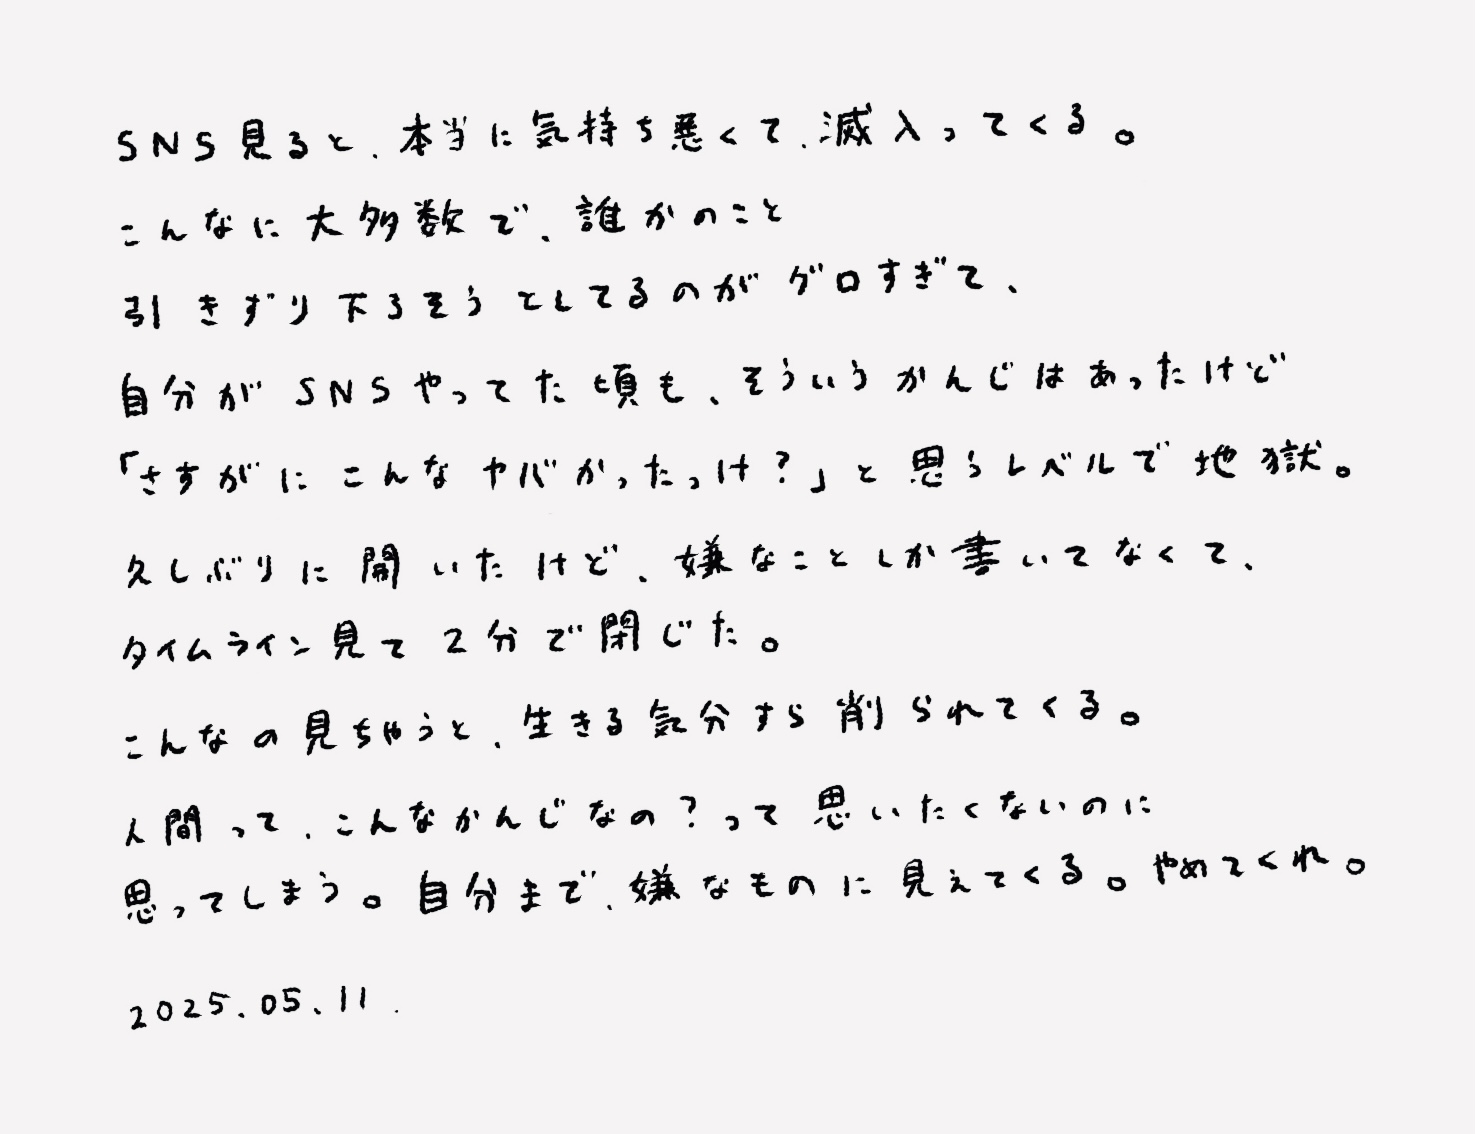 SNS見ると、本当に気持ち悪くて、滅入ってくる。
こんなに大多数で、誰かのこと
引きずり下ろそうとしてるのがグロすぎて、
自分がSNSやってた頃も、そういうかんじはあったけど
「さすがにこんなヤバかったっけ？」と思うレベルで地獄。
久しぶりに開いたけど、嫌なことしか書いてなくて、
タイムライン見て2分で閉じた。
こんなの見ちゃうと、生きる気分すら削られてくる。
人間って、こんなかんじなの？って思いたくないのに
思ってしまう。自分まで、嫌なものに見えてくる。やめてくれ。
2025.05.11.